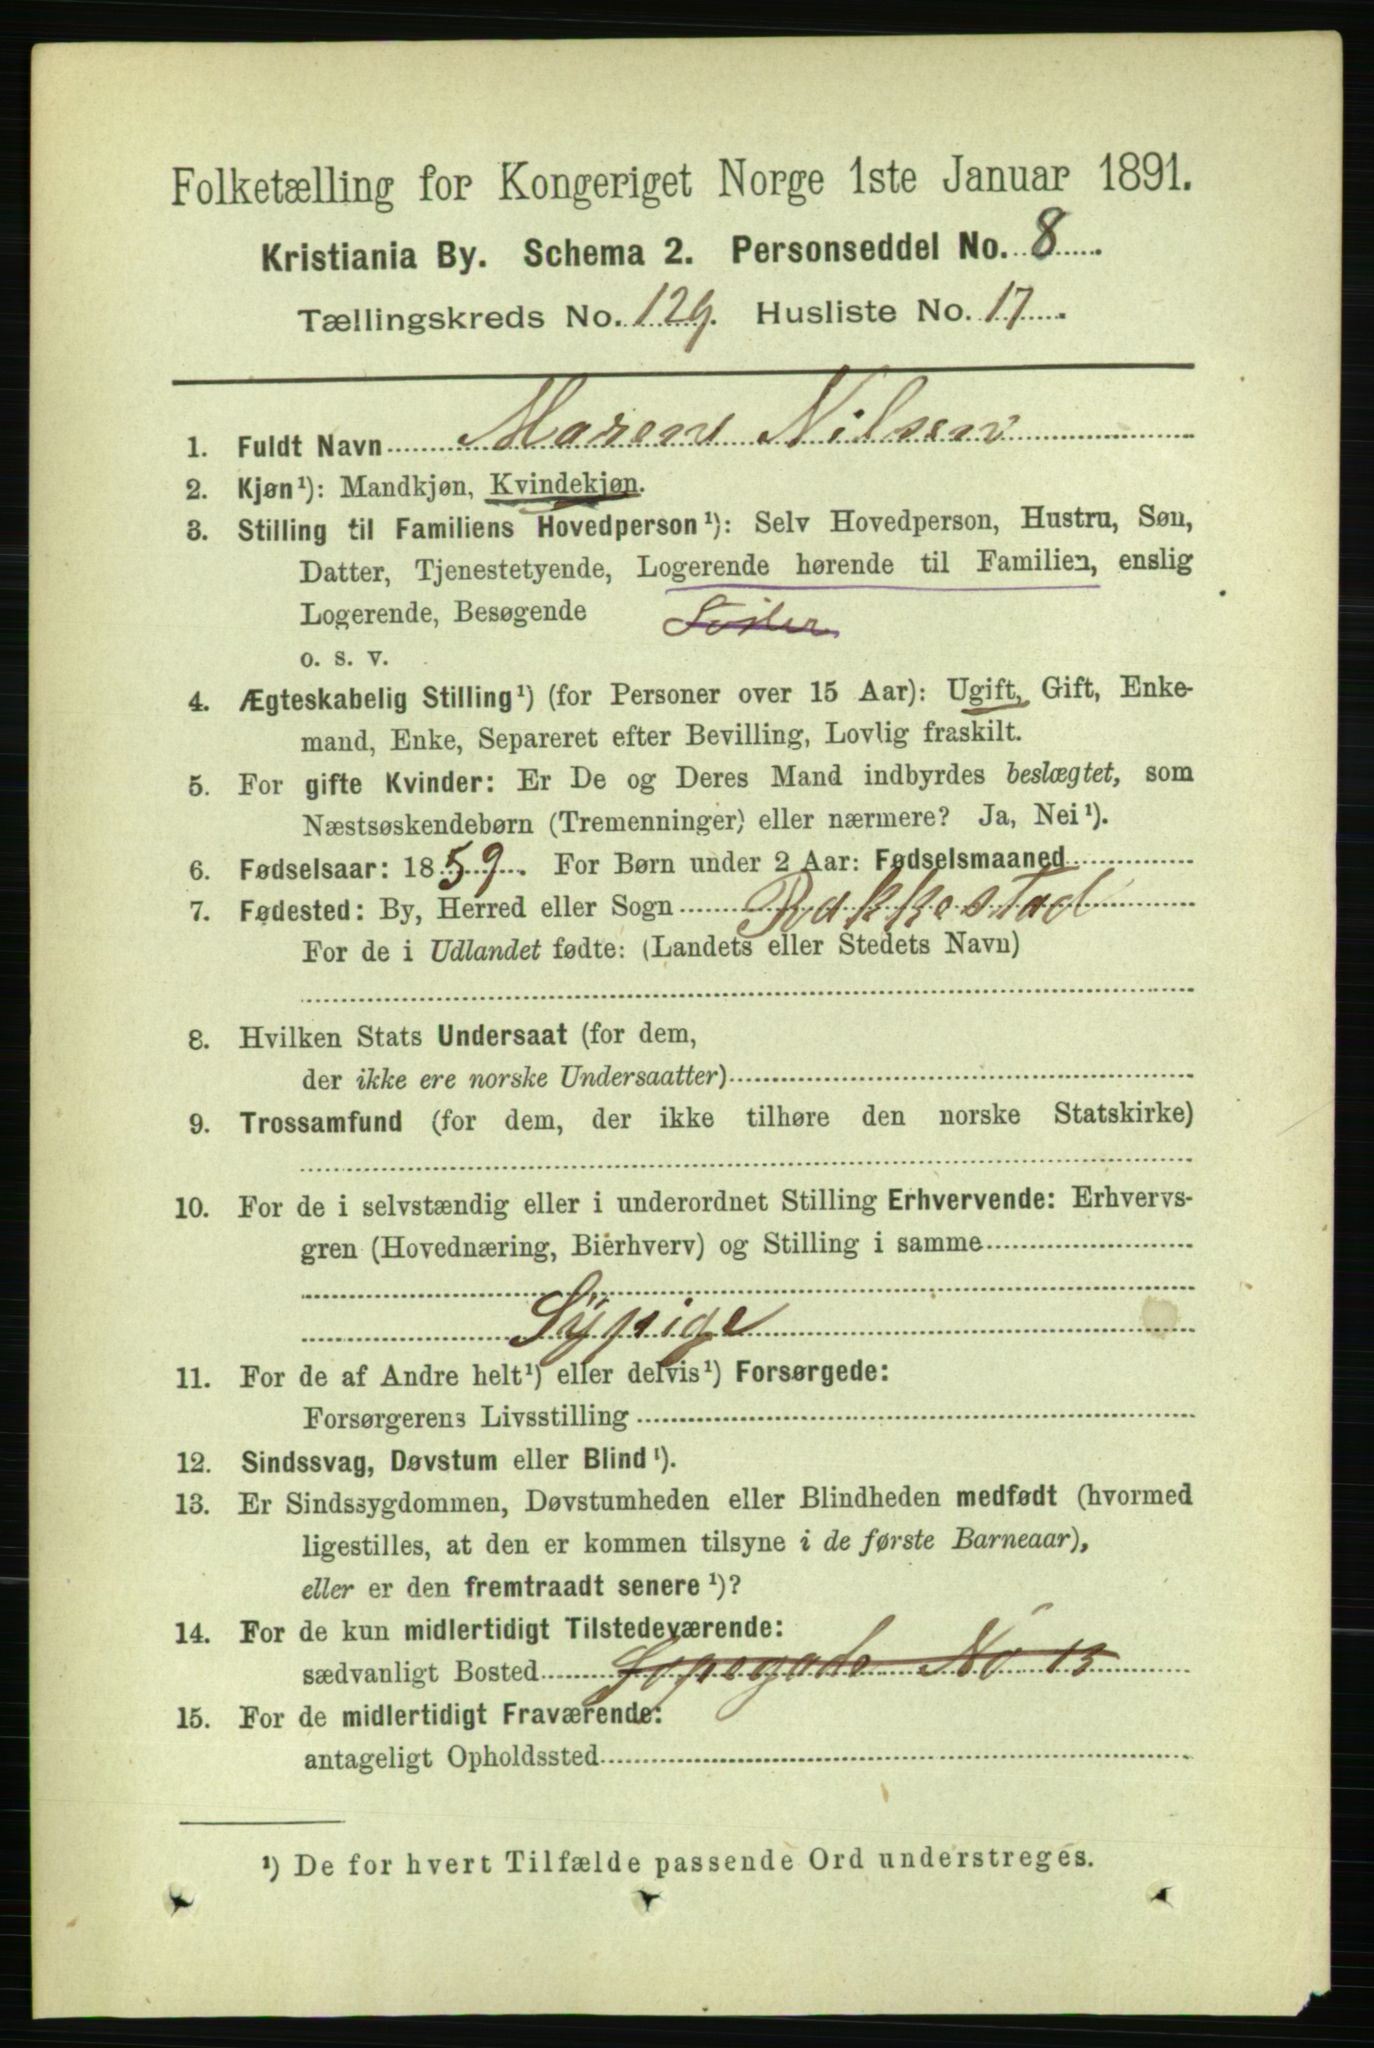 Folketælling for Kongeriget Norge 1ste Januar 1891.
Kristiania By. Schema 2. Personseddel No. 8
Tællingskreds No. 129. Husliste No. 17
1. Fuldt Navn Maren Nilsen
2. Kjøn¹): Mandkjøn, Kvindekjøn.
3. Stilling til Familiens Hovedperson¹): Selv Hovedperson, Hustru, Søn,
Datter, Tjenestetyende, Logerende hørende til Familien, enslig
Logerende, Besøgende
o. s. v.
4. Ægteskabelig Stilling¹) (for Personer over 15 Aar): Ugift, Gift, Enke-
mand, Enke, Separeret efter Bevilling, Lovlig fraskilt.
5. For gifte Kvinder: Er De og Deres Mand indbyrdes beslægtet, som
Næstsøskendebørn (Tremenninger) eller nærmere? Ja, Nei¹).
6. Fødselsaar: 1859. For Børn under 2 Aar: Fødselsmaaned
7. Fødested: By, Herred eller Sogn Rakkestad
For de i Udlandet fødte: (Landets eller Stedets Navn)
8. Hvilken Stats Undersaat (for dem,
der ikke ere norske Undersaatter)
9. Trossamfund (for dem, der ikke tilhøre den norske Statskirke)
10. For de i selvstændig eller i underordnet Stilling Erhvervende: Erhvervs-
gren (Hovednæring, Bierhverv) og Stilling i samme
Sÿpige
11. For de af Andre helt¹) eller delvis¹) Forsørgede:
Forsørgerens Livsstilling
12. Sindssvag, Døvstum eller Blind¹).
13. Er Sindssygdommen, Døvstumheden eller Blindheden medfødt (hvormed
ligestilles, at den er kommen tilsyne i de første Barneaar),
eller er den fremtraadt senere¹)?
14. For de kun midlertidigt Tilstedeværende:
sædvanligt Bosted No 13
15. For de midlertidigt Fraværende:
antageligt Opholdssted
¹) De for hvert Tilfælde passende Ord understreges.